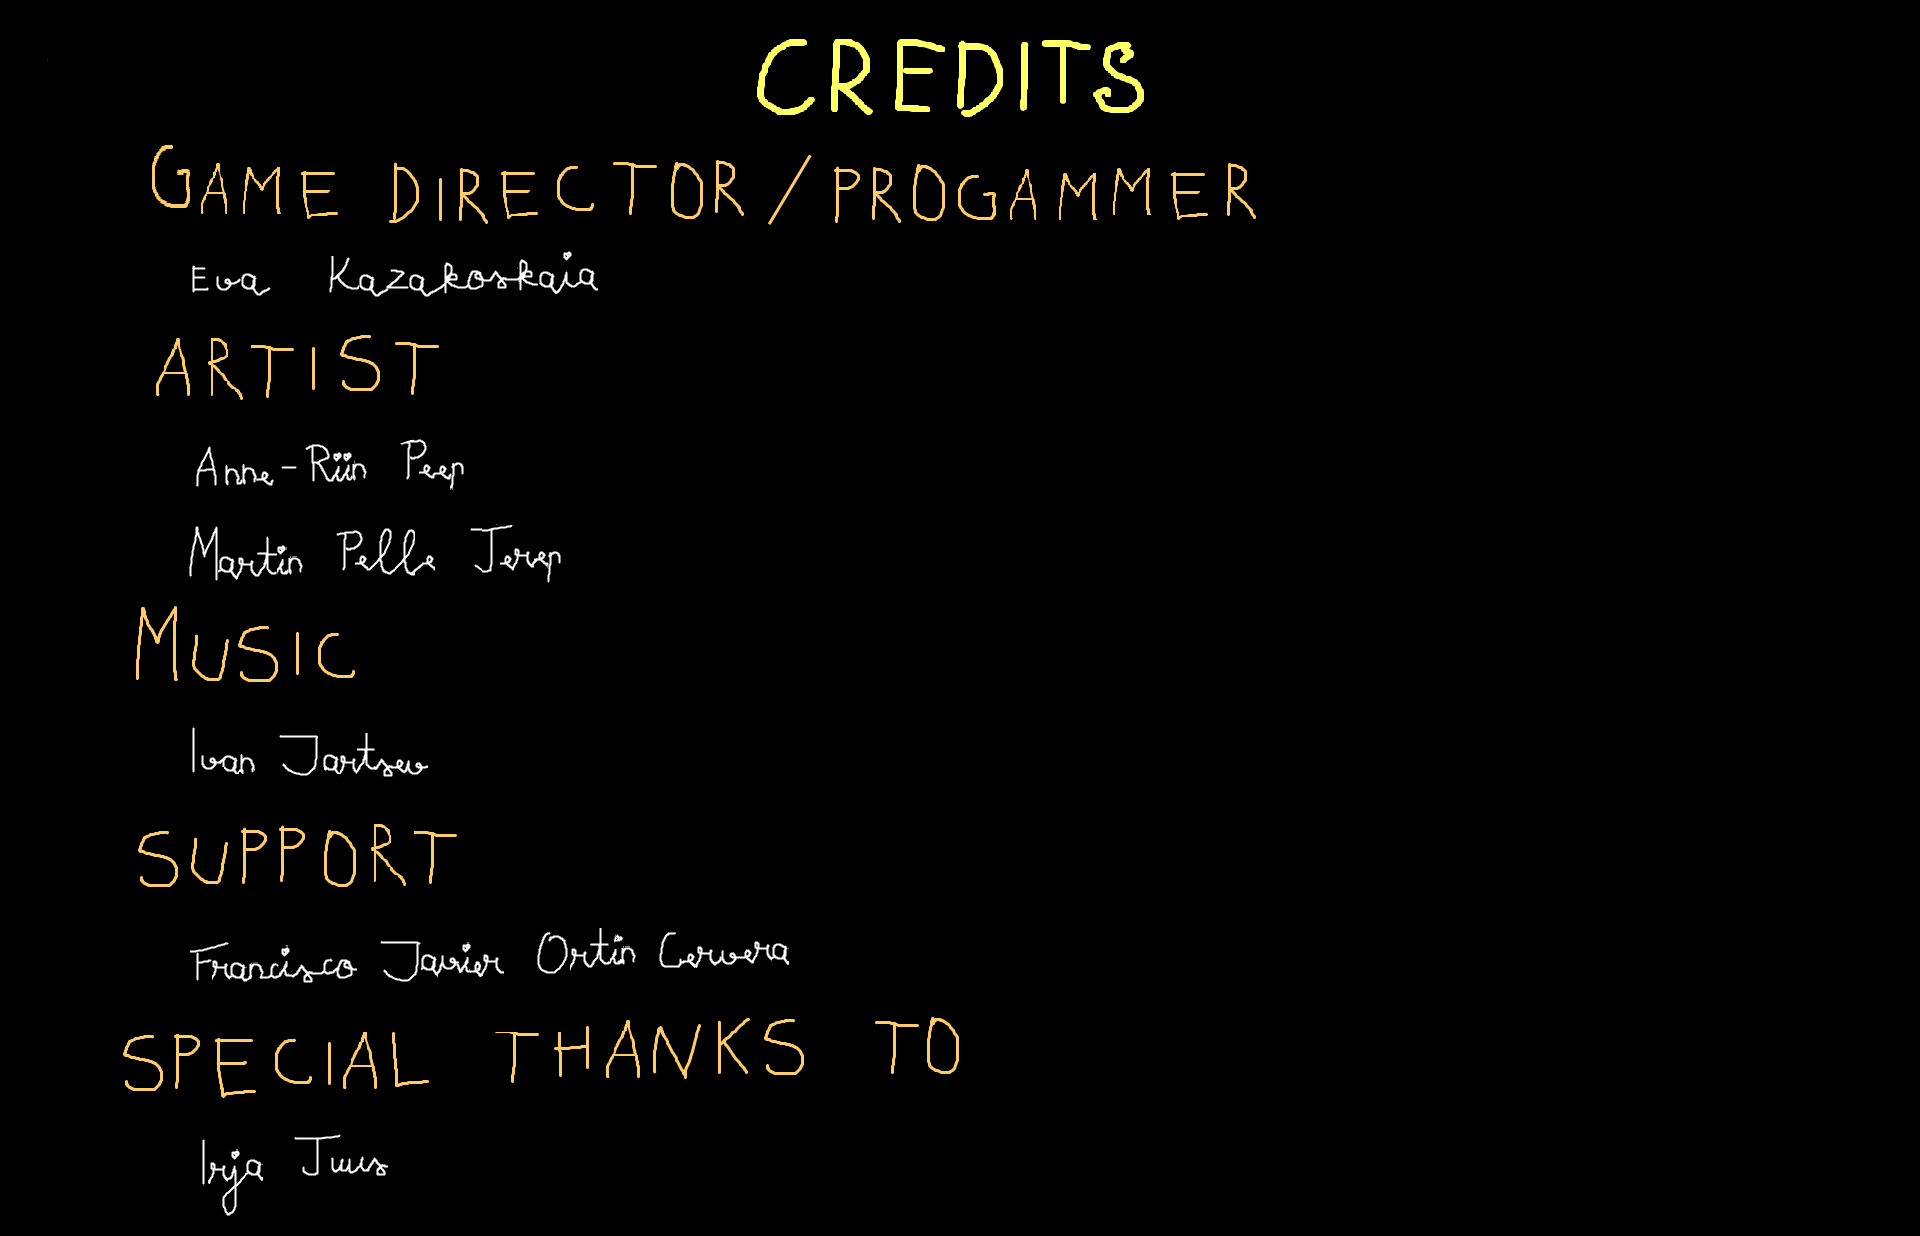 CREDITS
GAME DIRECTOR/PROGAMMER
Eva Kazakoskaia
ARTIST
Anne-Riin Peep
Martin Pelle Jerep
MUSIC
Ivan Jartsev
SUPPORT
Francisco Javier Ortin Cervera
SPECIAL THANKS TO
Irja Juus